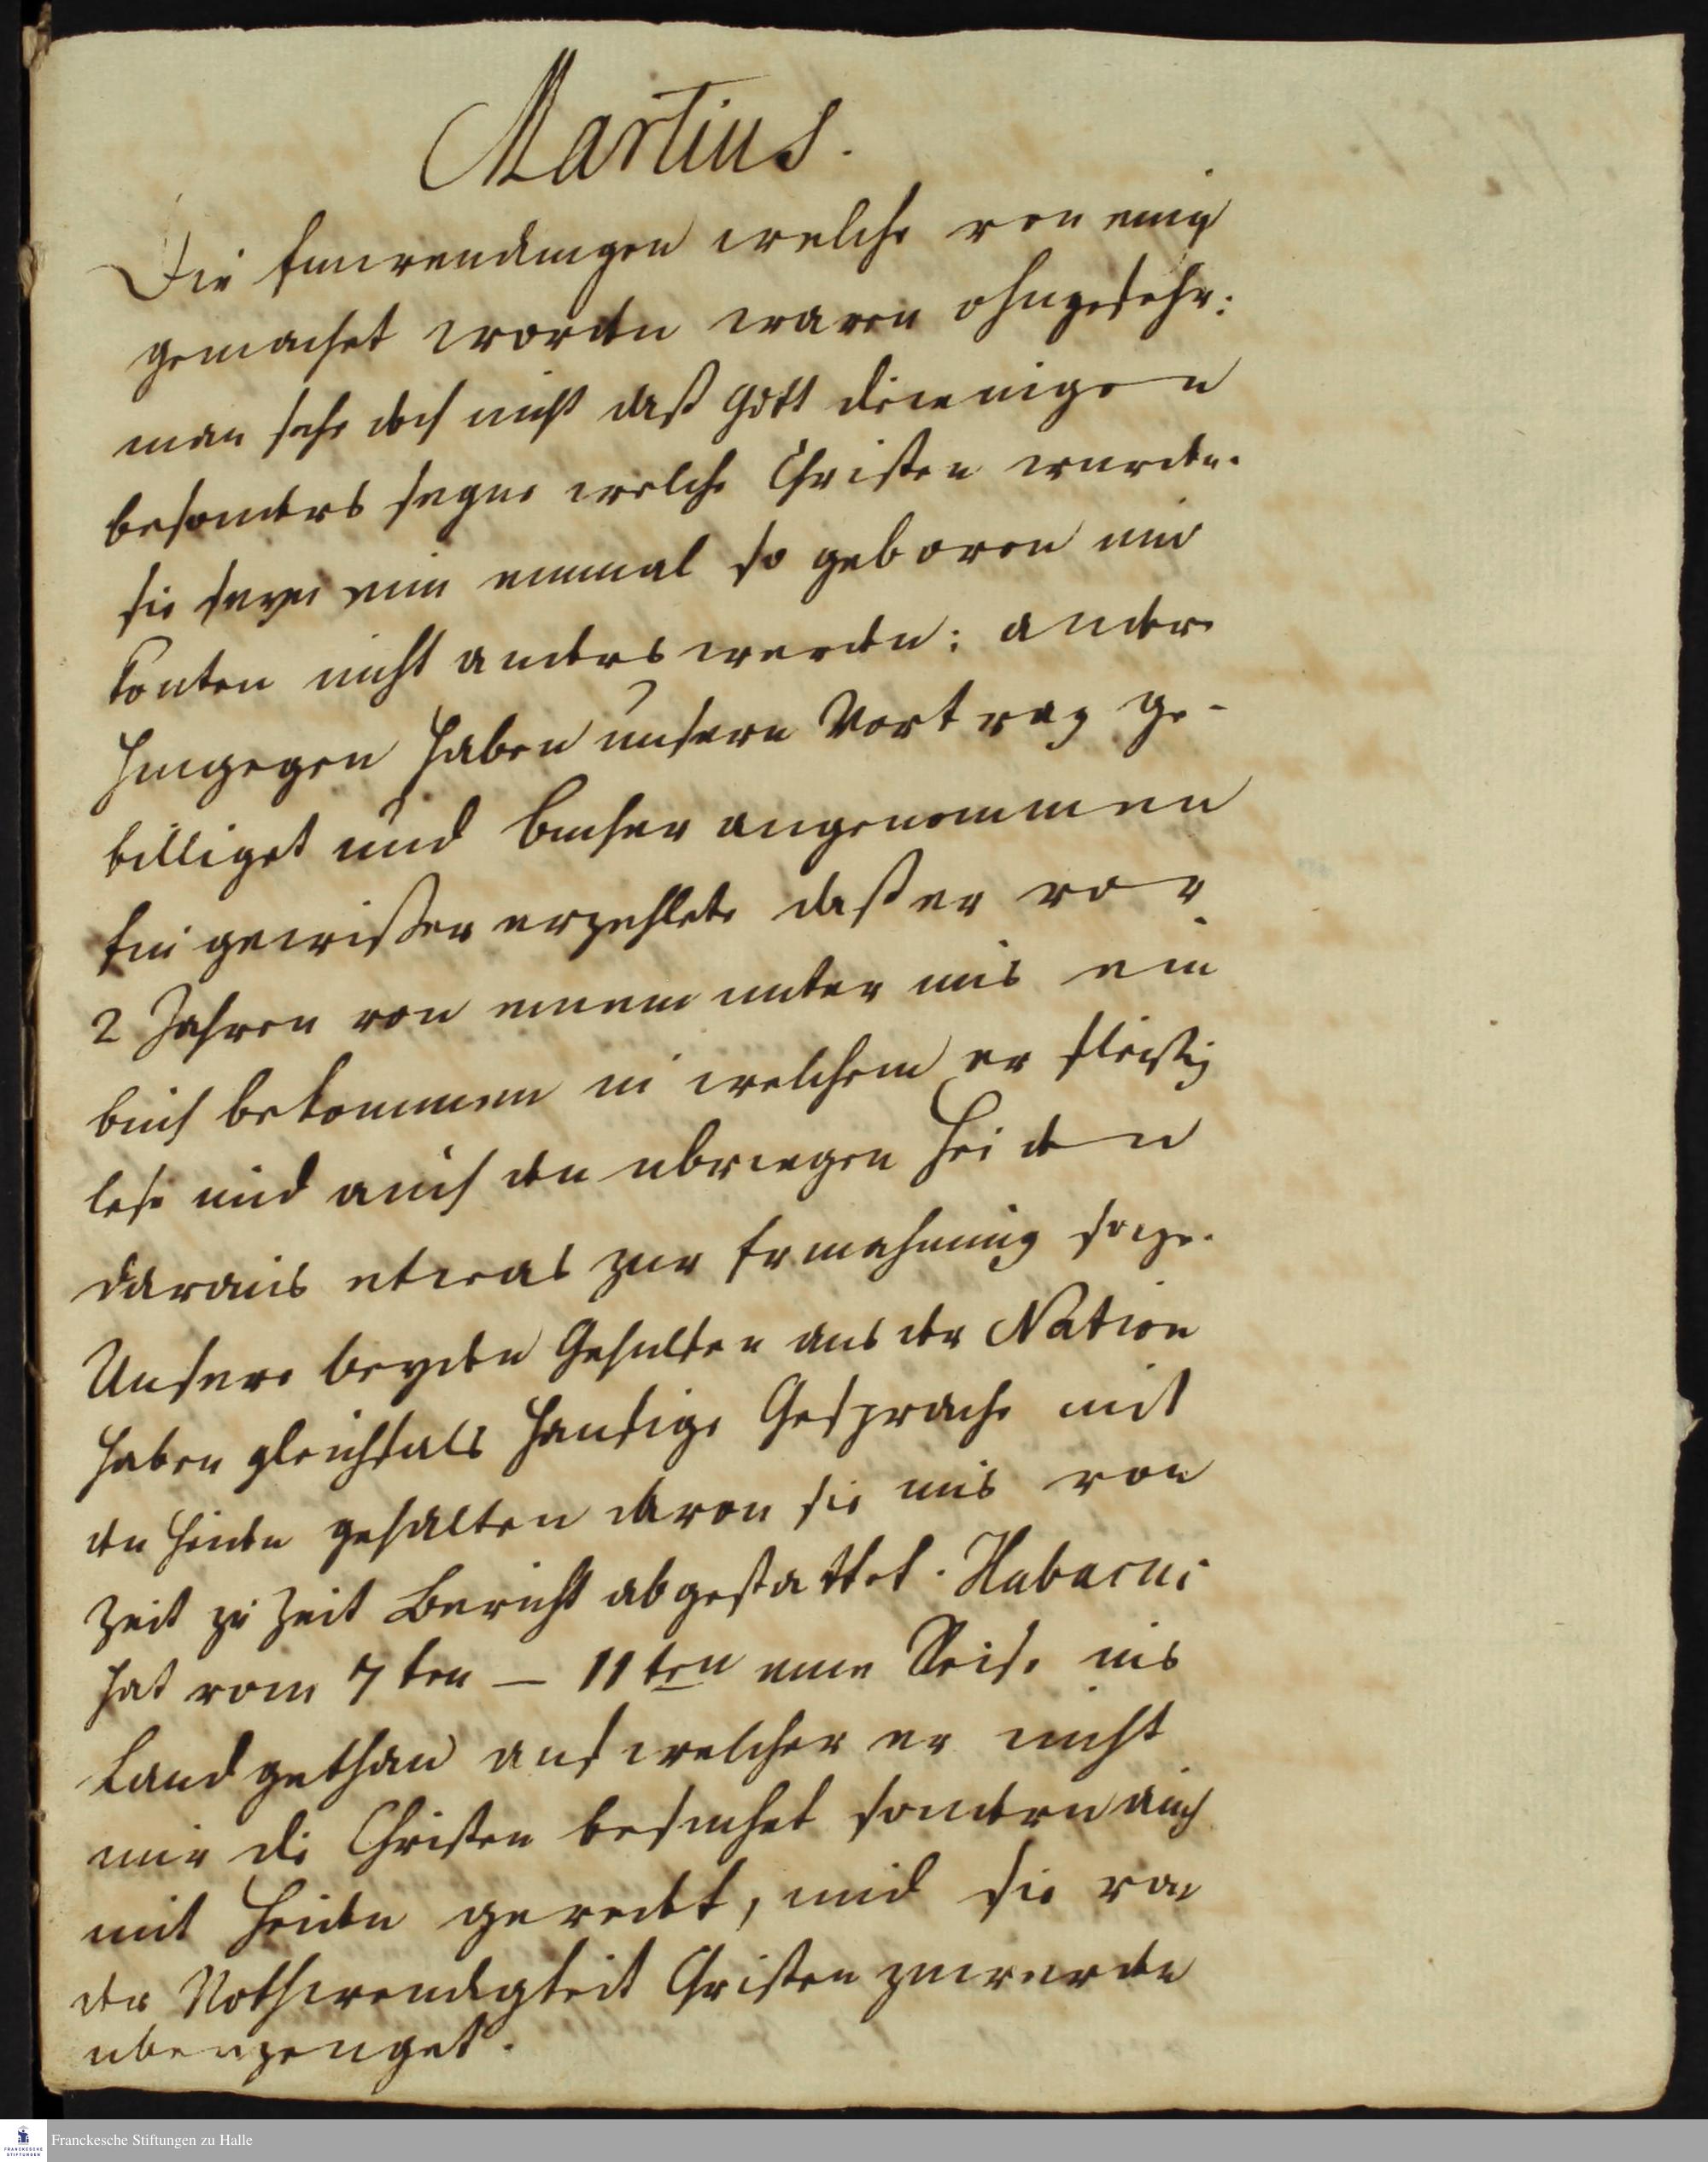 Martius.
Die Einwendungen welche von einig
gemachet worden waren ohngefehr:
man sehe doch nicht daß Gott diejenigen
besonders segne welche Christen wurden.
sie seyn nun einmal so geboren und
konten nicht anders werden: andere
hingegen haben unsern Vortrag ge-
billiget und bucher angenommen
Ein gewißer erzehlete daß er vor
2 Jahren von einem unter uns ein
buch bekommen in welchem er fleißig
lese und auch den ubriegen Heiden
daraus etwas zur Ermahnung sage.
Unsere beyden Gehulfen aus der Nation
haben gleichfals haufige Gesprache mit
den Heiden gehalten davon sie uns von
Zeit zu Zeit Bericht abgestattet. Habacuc
hat vom 7 ten - 11 ten eine Reise ins
Land gethan auf welcher er nicht
nur die Christen besuchet sondern auch
mit Heiden geredet, und sie von
der Nothwendigkeit Christen zuwerden
uberzeuget.
Franckesche Stiftungen zu Halle
FRANCKESCHE STIFTUNGEN